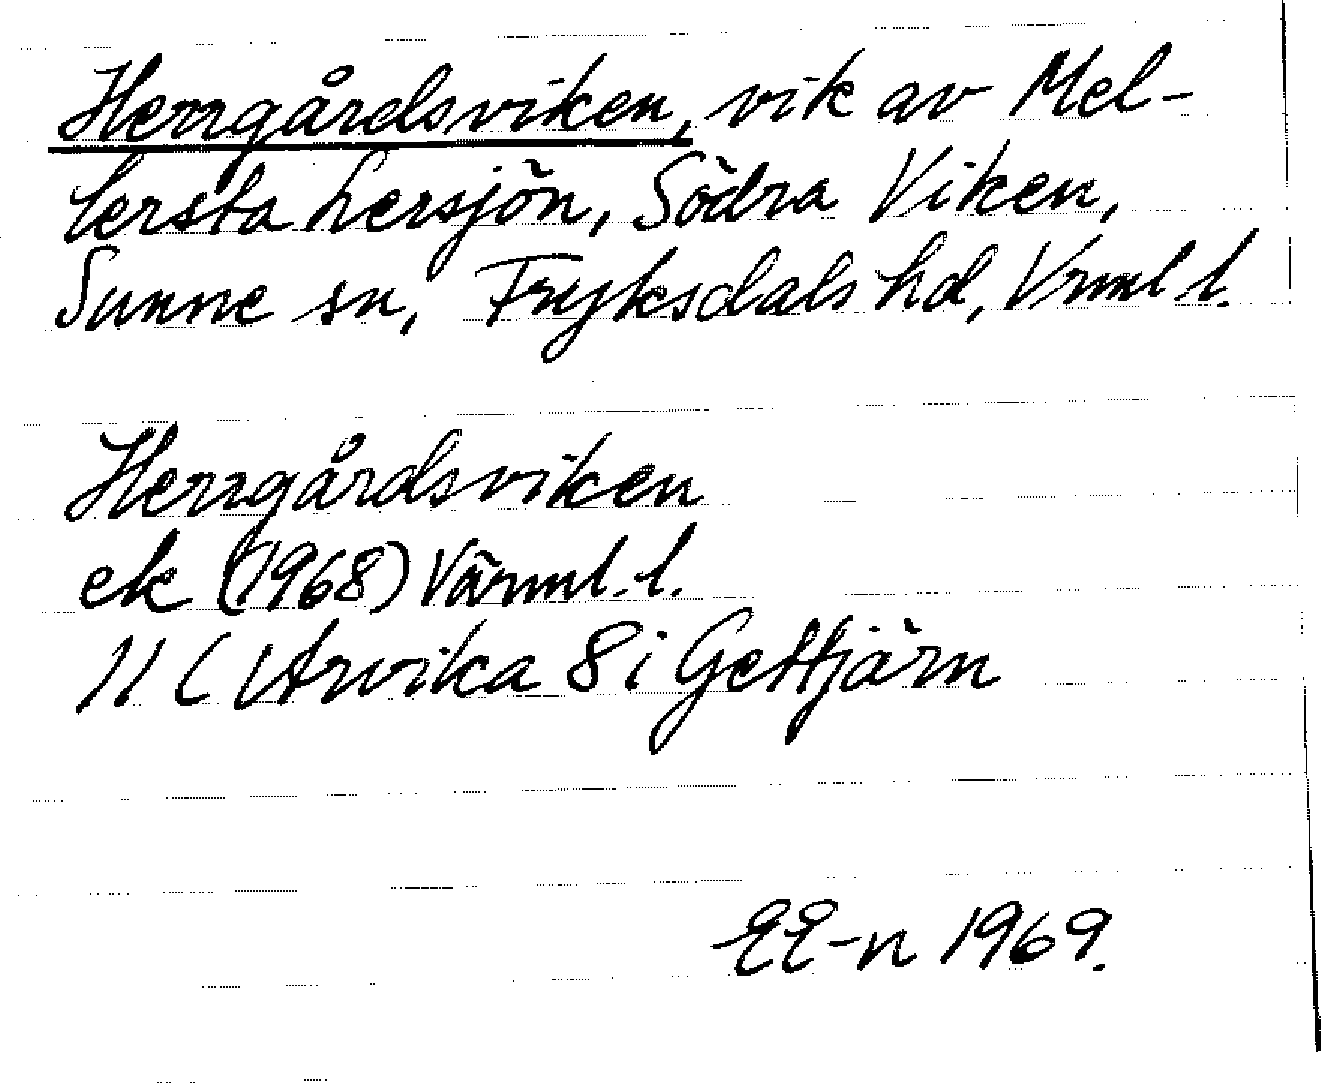 Herrgårdsviken, vik av Mel-
lersta Lersjön, Södra Viken,
Sunne sn, Fryksdals hd, Vrml l.
Herrgårdsviken
ek (1968) Värml. l.
11 C Arvika 8 i Gettjärn
EE-n 1969.